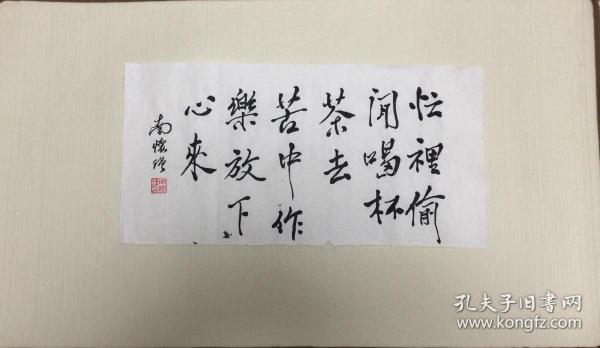 忙裡偷
閒喝杯
茶去
苦中作
樂放下
心來
南懷瑾
孔夫子旧书网
www.kongfz.com